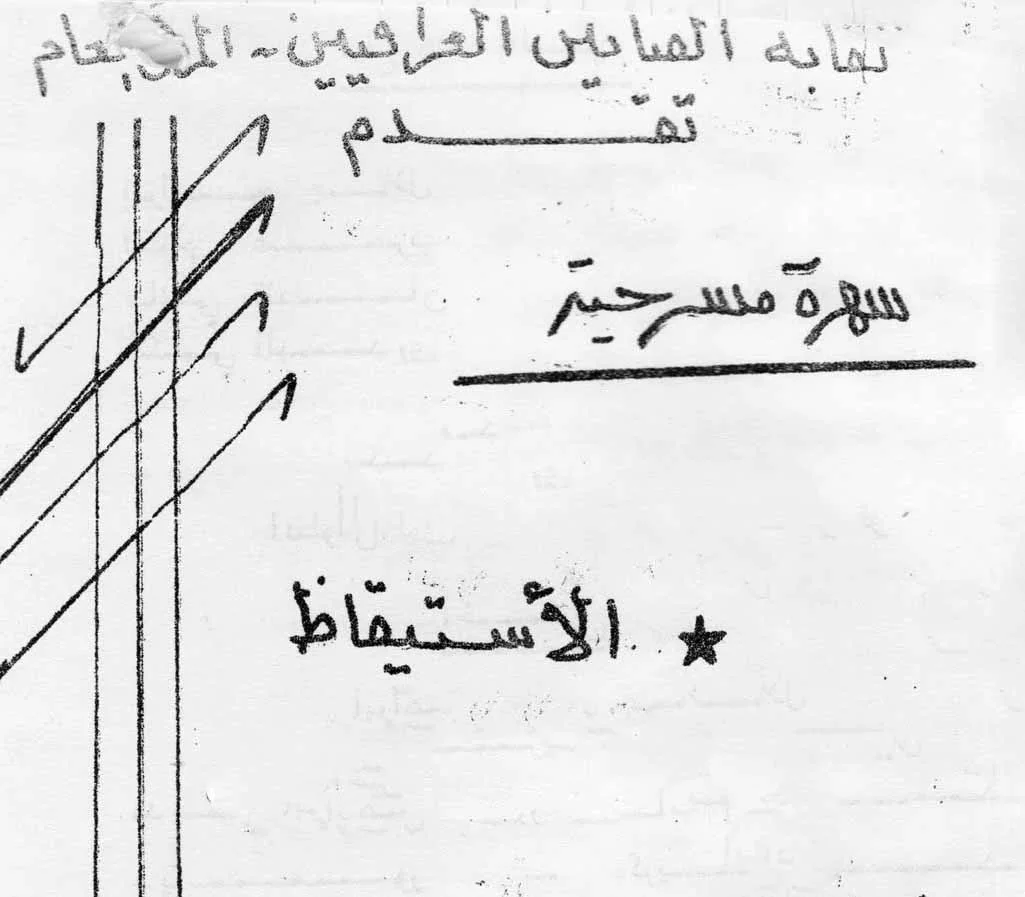 نقابه الفنانين العراقيين - المركز العام
تقدم
سهرة مسرحية
★ الأستيقاظ